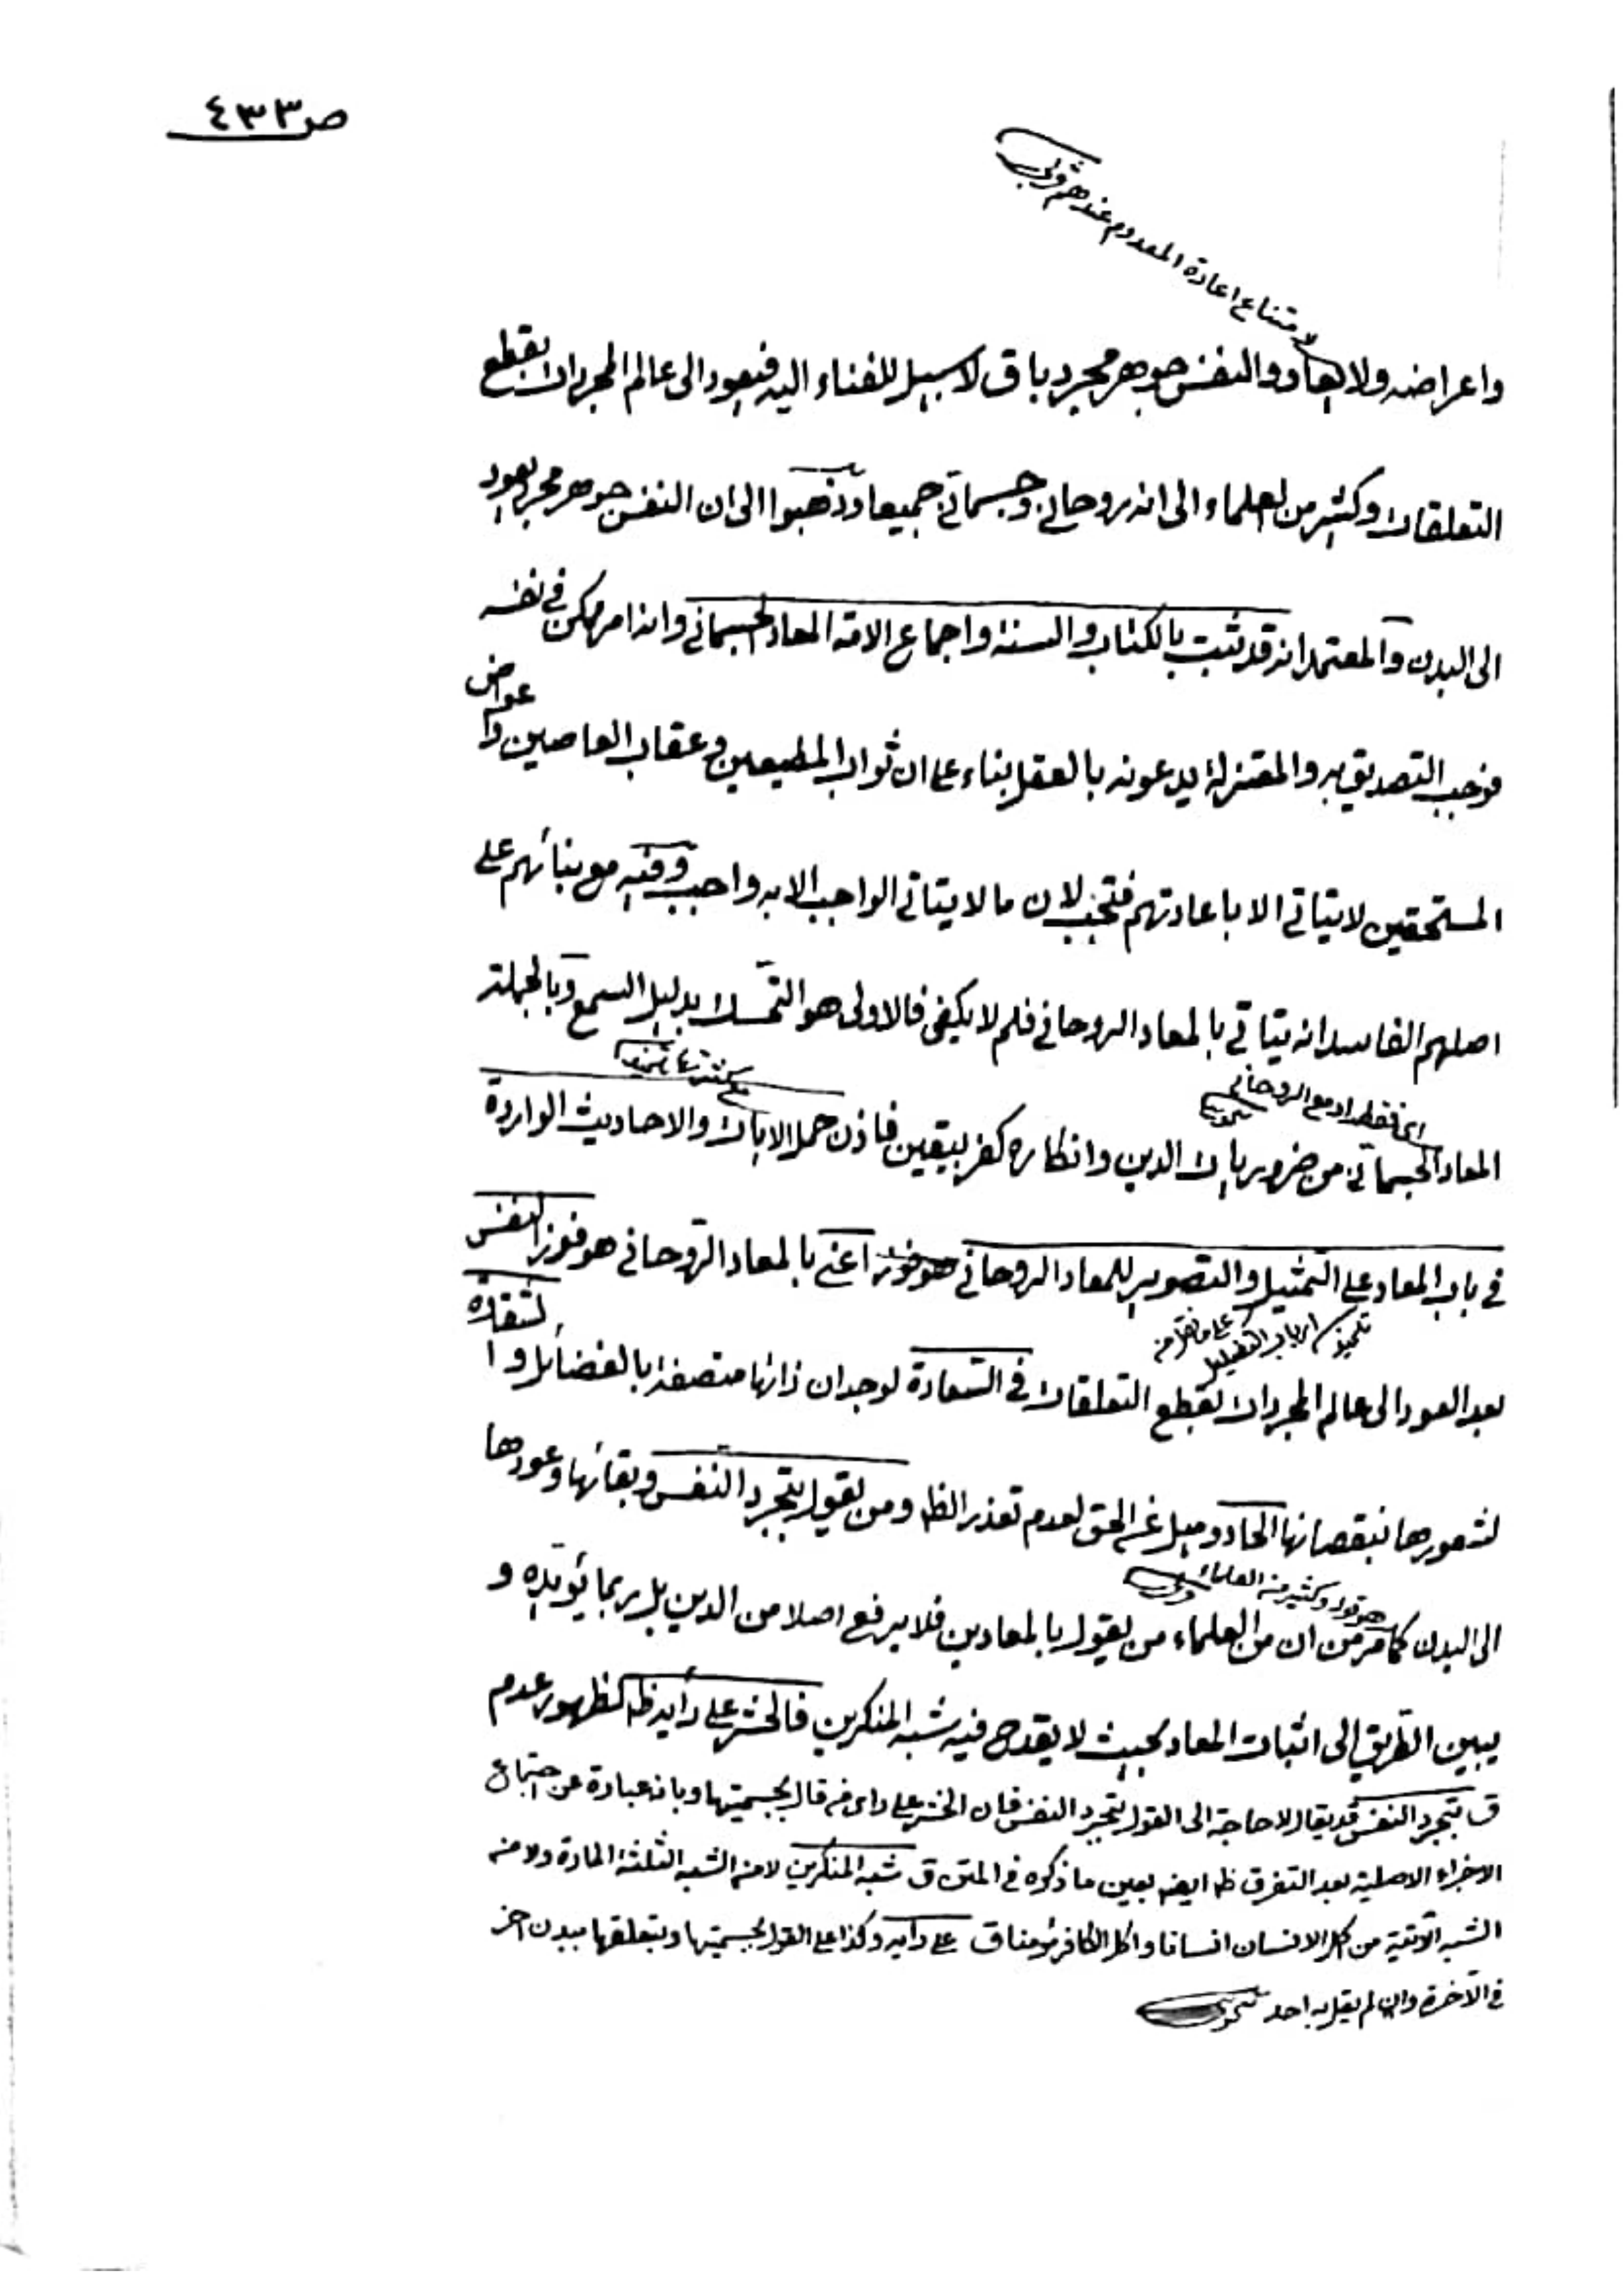 ص ٤٣٣
لامتناع اعادة المعدوم عندهم
واعراضه ولا يعاد والنفس جوهر مجرد باق لا سبيل للفناء اليه فيعود الى عالم المجردات بقطع
التعلقات وكثير من العلماء الى انه روحاني وجسماني جميعا وذهبوا الى ان النفس جوهر مجرد يعود
الى البدن والمعتمد انه قد ثبت بالكتاب والسنة واجماع الامة المعاد الجسماني وانه امر ممكن في نفسه
فوجب التصديق به والمعتزلة يدعونه بالعقل بناء على ان ثواب المطيعين وعقاب العاصين واعواض
المستحقين لا يتاتي الا باعادتهم فتجب لان ما لا يتاتي الواجب الا به واجب وفيه مع بنائهم على
اصلهم الفاسد انه يتاتي بالمعاد الروحاني فلم لا يكفي فالاولى هو التمسك بدليل السمع وبالجملة
على كثرتها
اي فقط او مع الروحاني
المعاد الجسماني من ضروريات الدين وانكاره كفر بيقين فاذن حمل الايات والاحاديث الواردة
في باب المعاد على التمثيل والتصوير للمعاد الروحاني هو فوز اعني بالمعاد الروحاني هو فوز النفس
ارباب التعطيل
بعد العود الى عالم المجردات بقطع التعلقات في السعادة لوجدان ذاتها متصفة بالفضائل والشقاوة
لشعورها بنقصانها الحاد وميل عن الحق لعدم تعذر الظ ومن يقول بتجرد النفس وبقائها وعودها
هو قوله وكثير من العلماء
الى البدن كما مر من ان من العلماء من يقول بالمعادين فلا يرفع اصلا من الدين بل ربما يؤيده و
يبين الطريق الى اثبات المعاد بحيث لا يقدح فيه شبه المنكرين فالحشر على رأيه ظ لظهور عدم
ق بتجرد النفس قد يقال لا حاجة الى القول بتجرد النفس فان الحشر على راى من قال بجسميتها وبانه عبارة عن اجتماع
الاجزاء الاصلية بعد التفرق ظ ايضا بعين ما ذكره في المتن ق شبه المنكرين لا من الشبه الثلثة المادة ولا من
الشبه الآتية من اكل الانسان انسانا واكل الكافر مؤمنا ق على رأيه وكذا على القول بجسميتها وبتعلقها ببدن اخر
في الآخرة وان لم يقل به احد